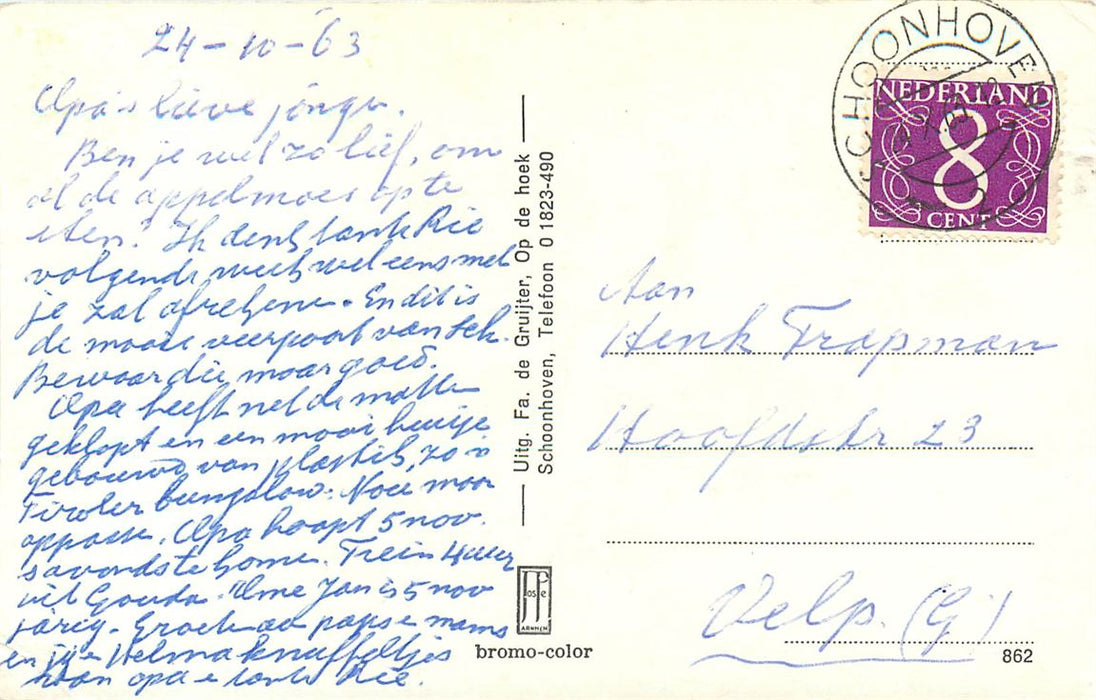 24-10-63
Opa's lieve jongen.
Ben je wel zo lief, om
al de appelmoes op te
eten? Ik denk tante Rie
volgende week wel eens met
je zal afrekenen. En dit is
de mooie veerpoort van Sch.
Bewaar die maar goed.
Opa heeft net de matten
geklopt en een mooi huisje
gebouwd van plastik, zo'n
Tiroler bungalow. Moet maar
oppassen. Opa hoopt 5 nov.
savonds te komen. Trein 4 uur
uit Gouda. Ome Jan is 5 nov
jarig. Groeten aan paps e mams
en jij e Helma knuffeltjes
van opa e tante Rie.
Uitg. Fa. de Gruijter, Op de hoek
Schoonhoven, Telefoon 0 1823-490
JosPe
ARNHEM
bromo-color
SCHOONHOVEN
NEDERLAND
8
CENT
Aan
Henk Trapman
Hoofdstr 23
Velp. (G)
862